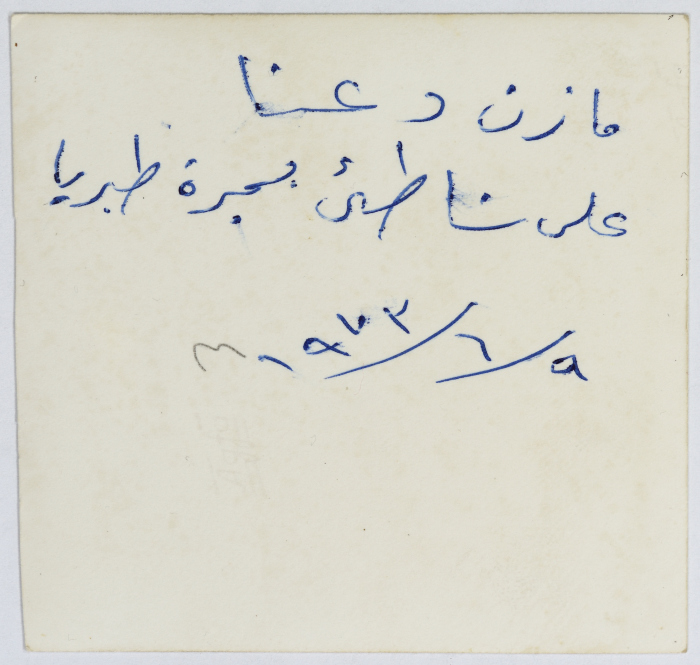 مازن دعنا
على شاطئ بحيرة طبريا
٩/٦/١٩٧٣